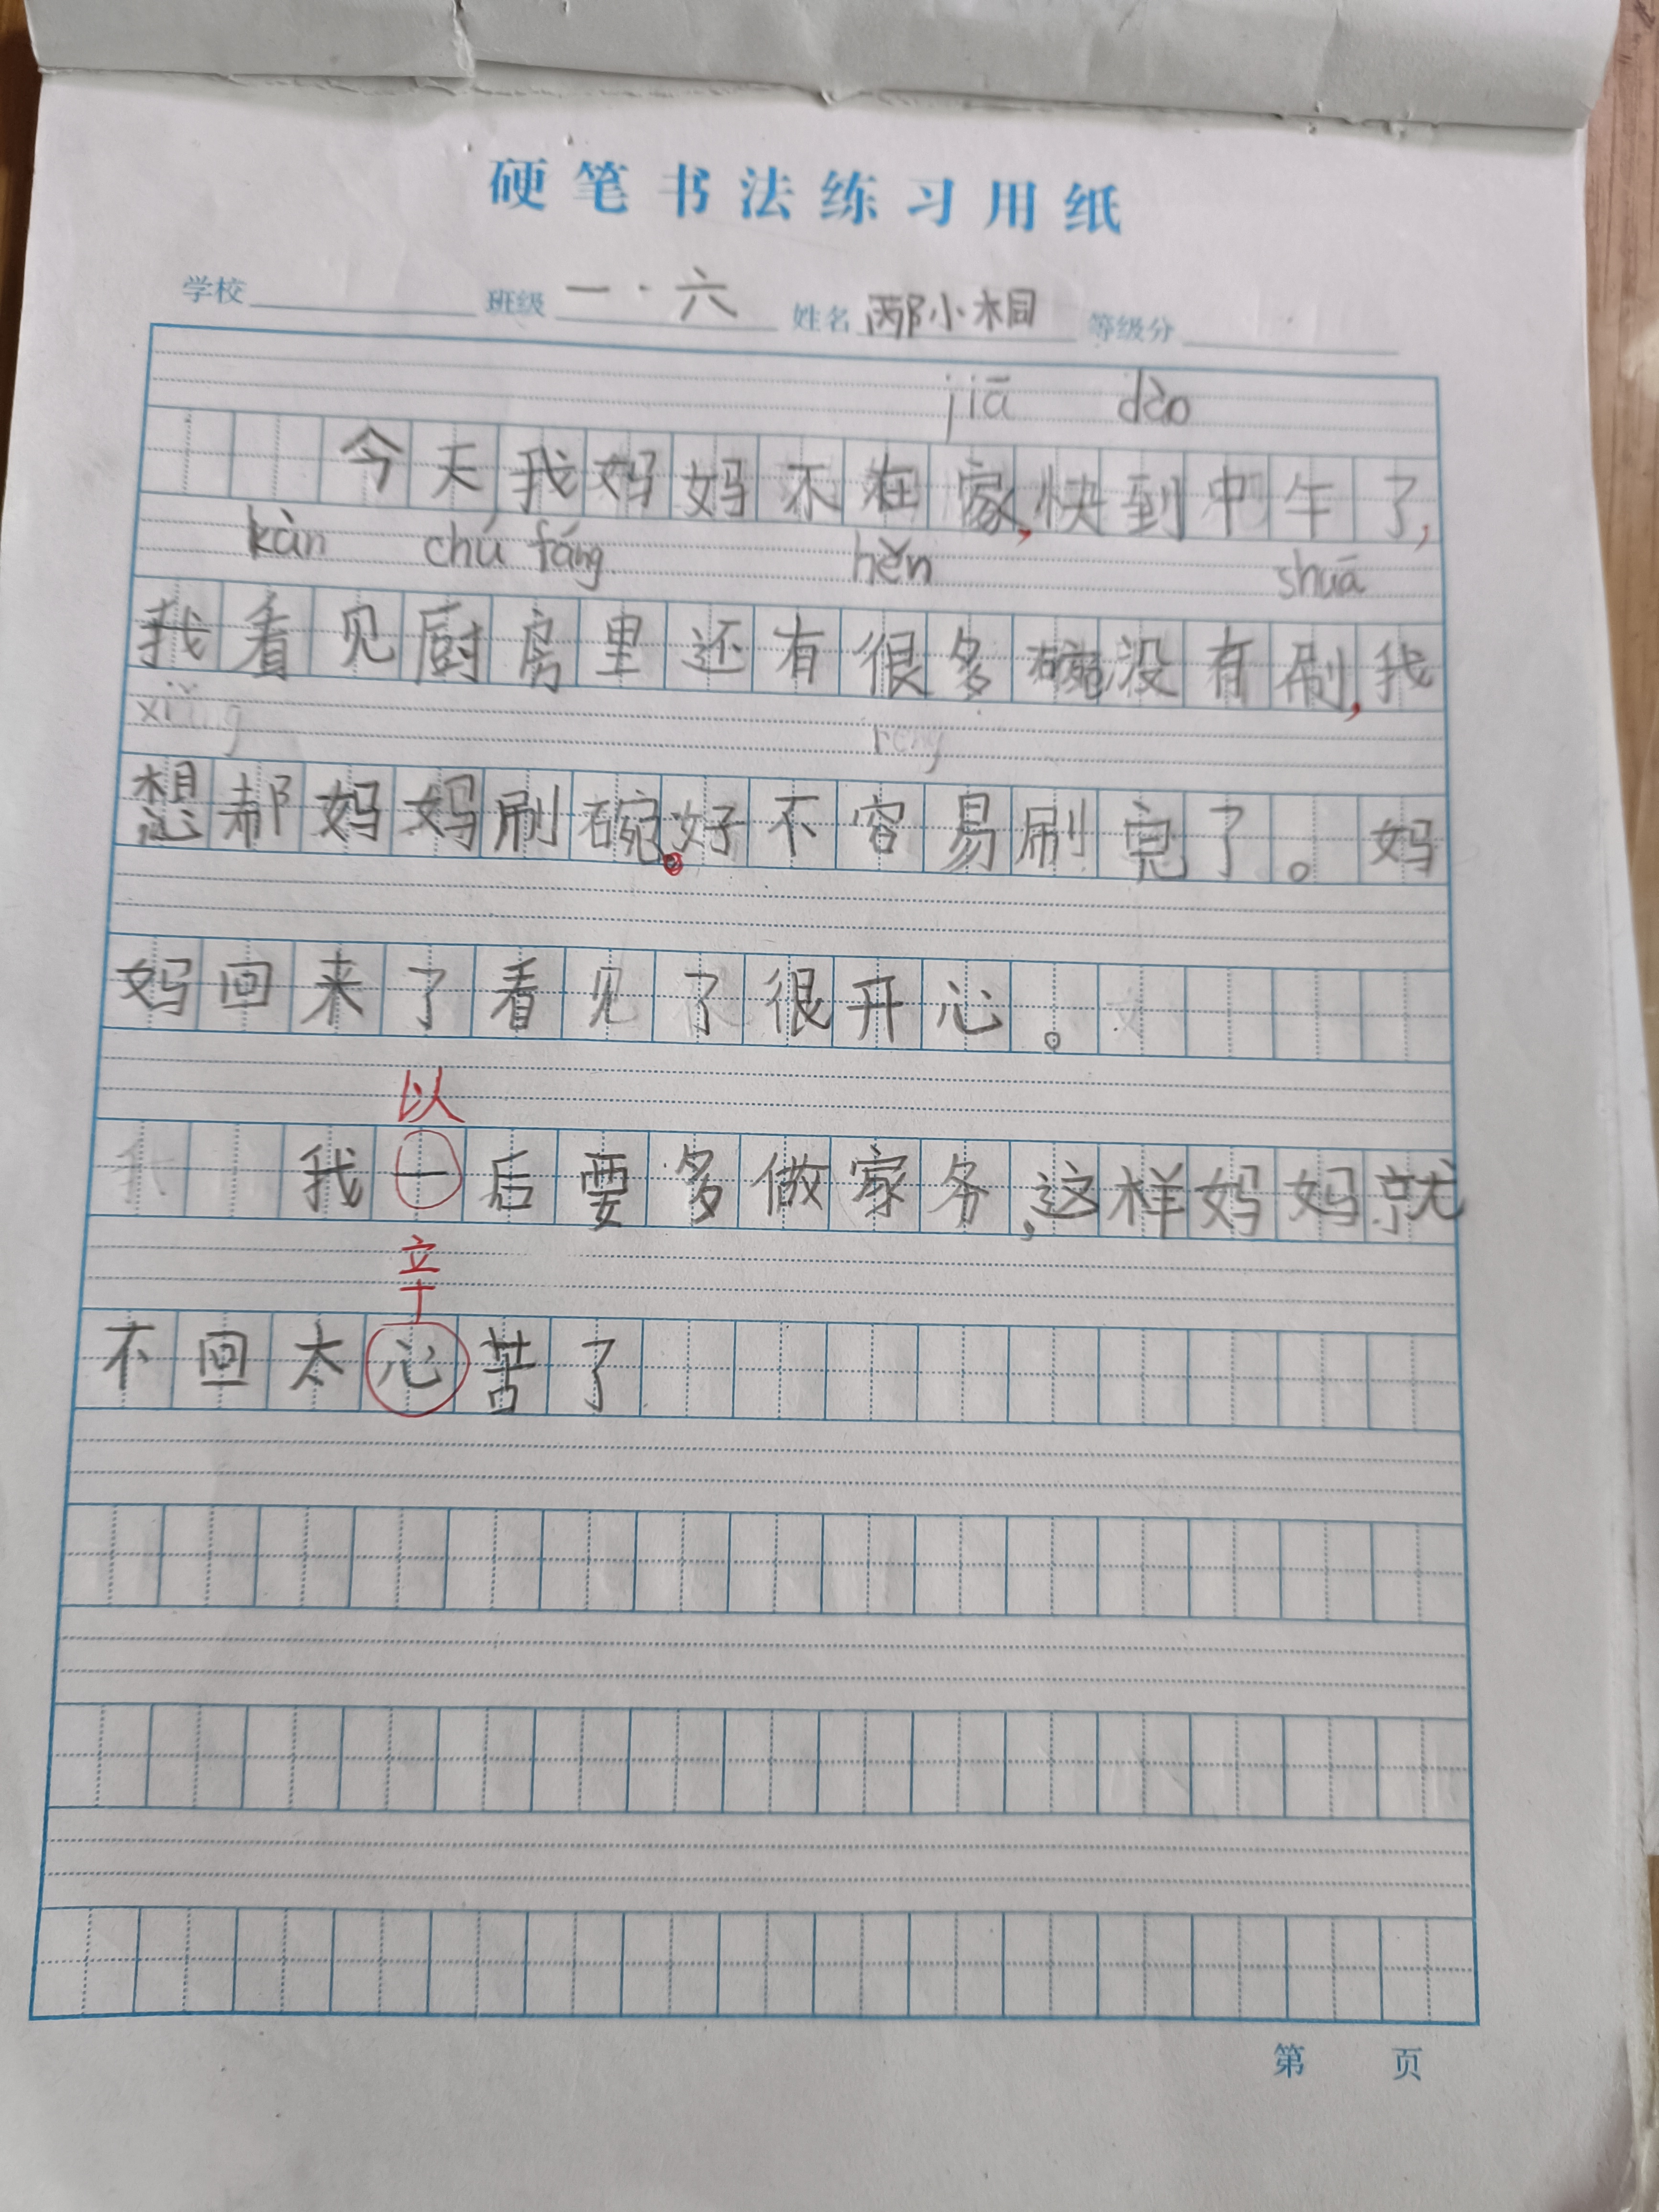 硬笔书法练习用纸
学校 班级 一·六 姓名 邴小桐 等级分
jiā dào
今天我妈妈不在家,快到中午了,
kàn chú fáng hěn shuā
我看见厨房里还有很多碗没有刷,我
xiǎng róng
想帮妈妈刷碗。好不容易刷完了。妈
妈回来了看见了很开心。
以
我一后要多做家务,这样妈妈就
辛
不回太心苦了
第 页